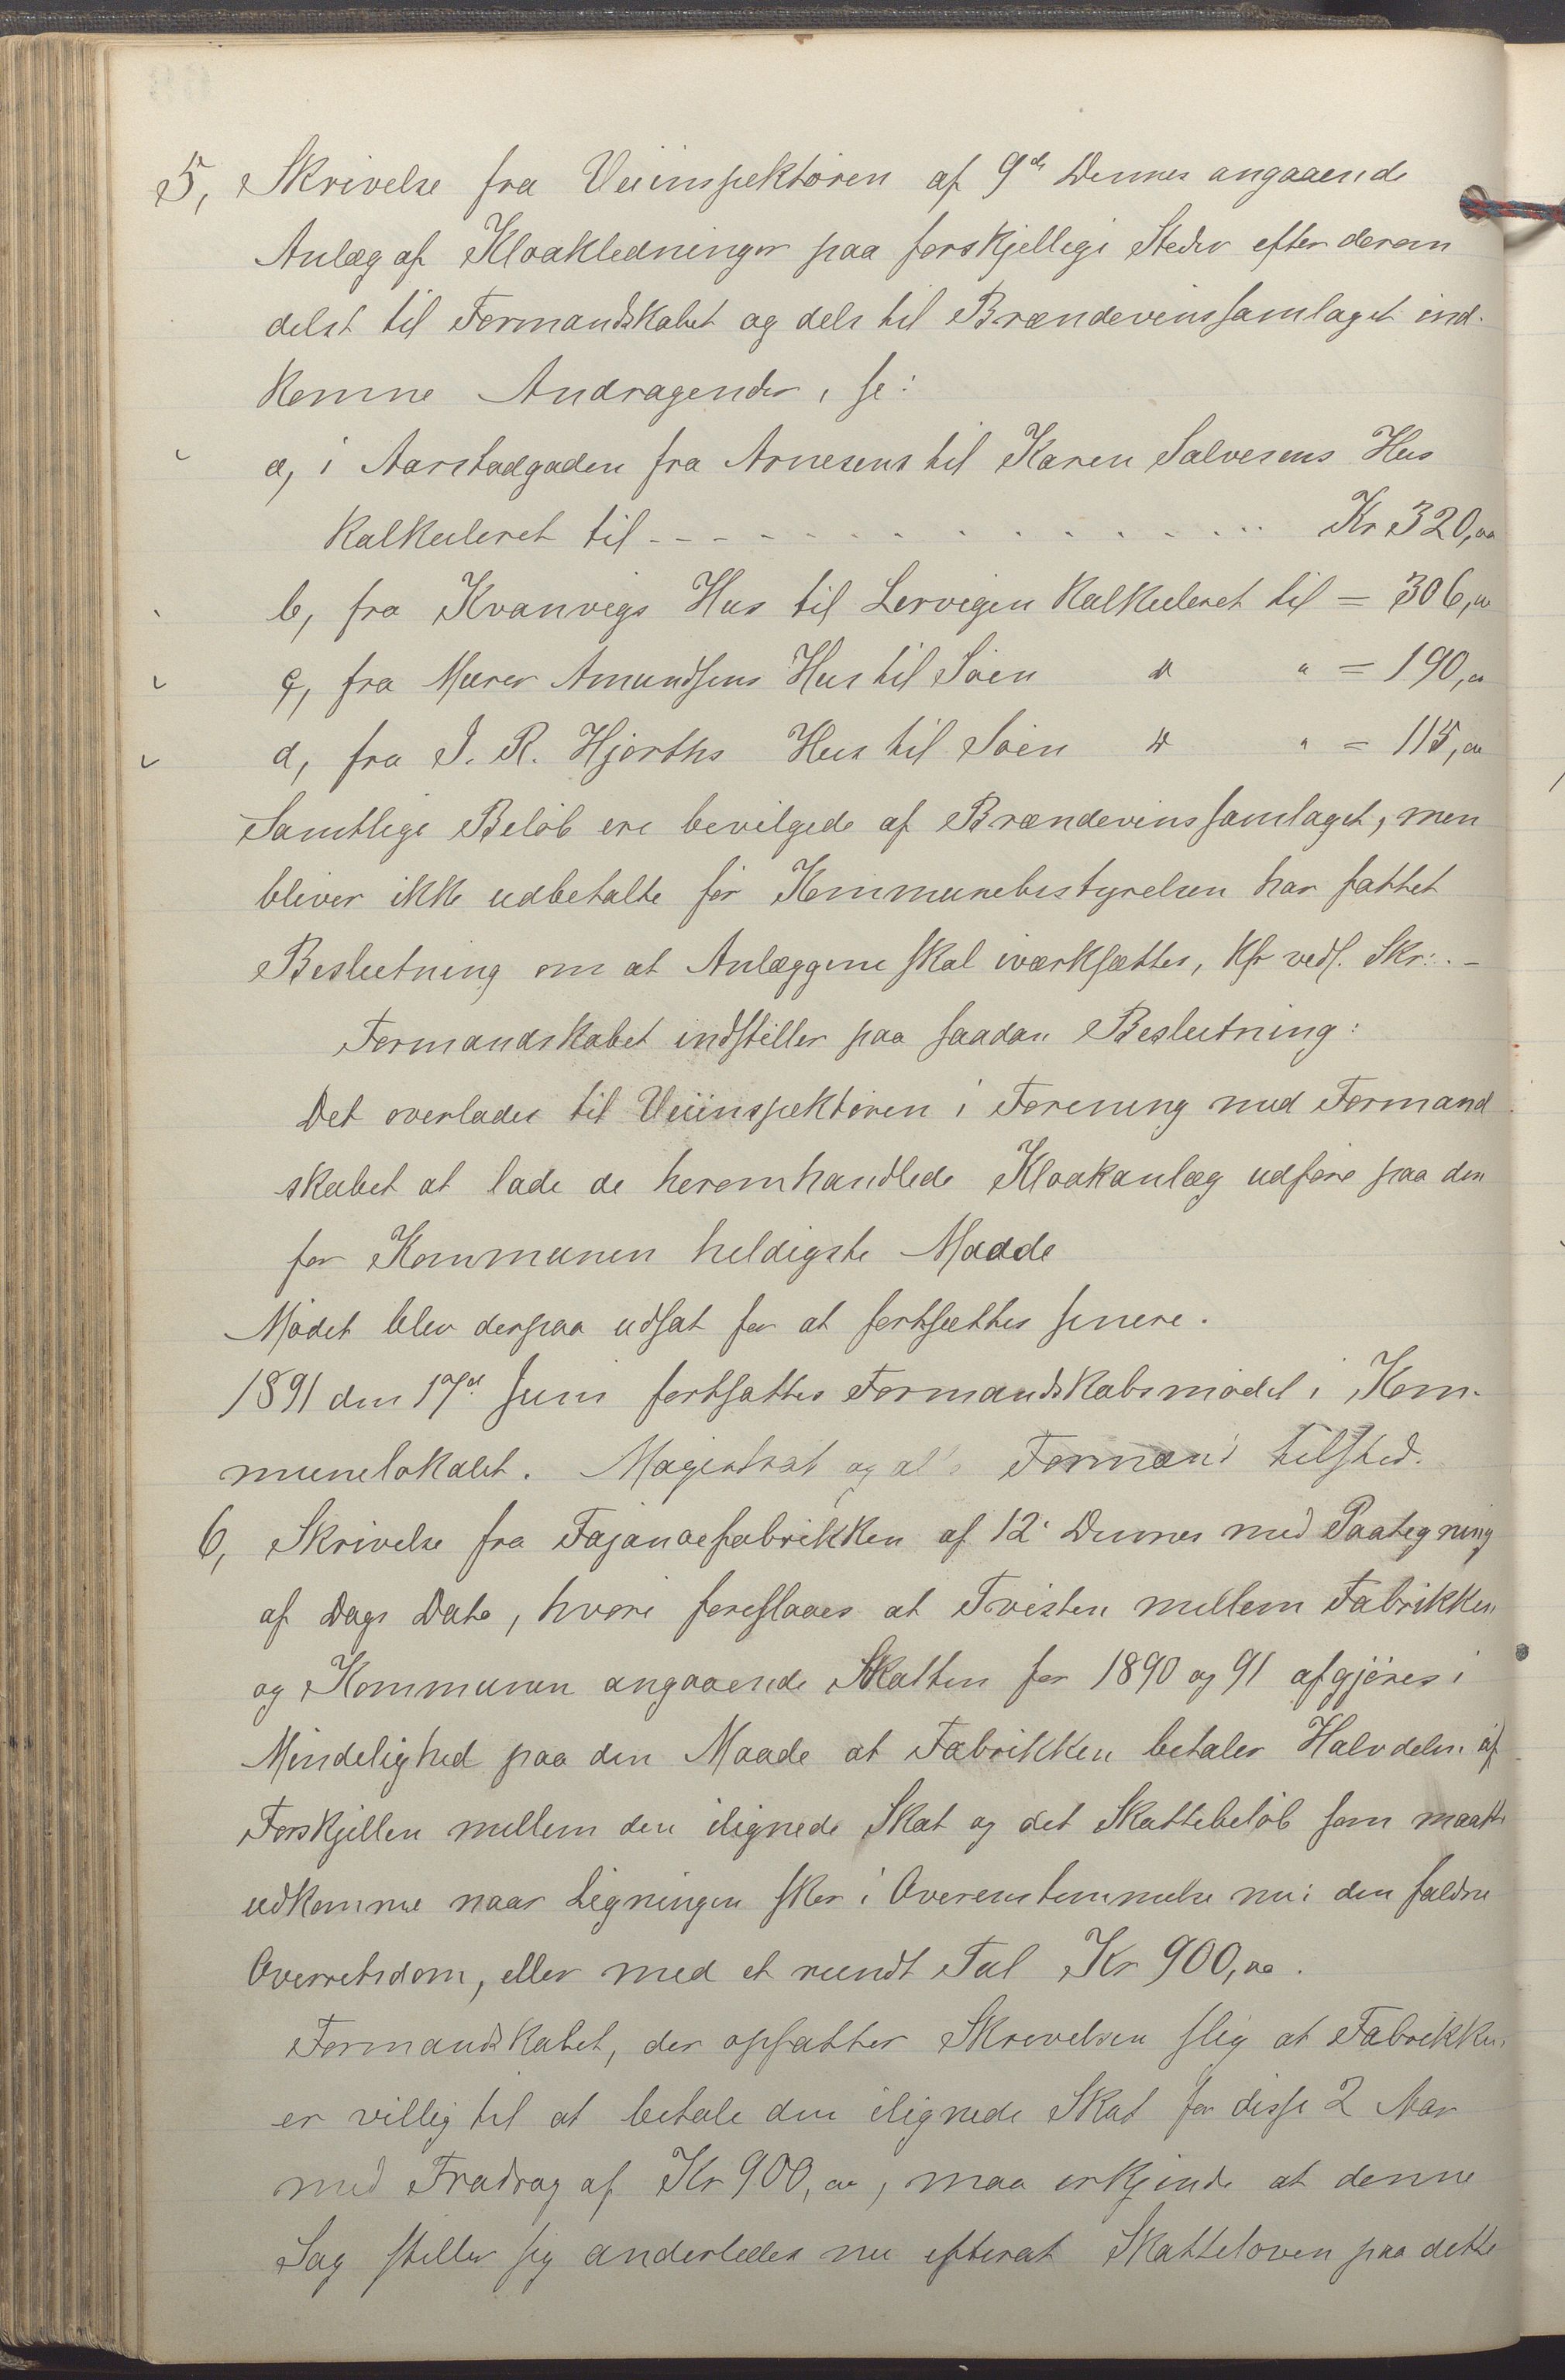 5, Skrivelse fra Veiinspektøren af 9de Dennes angaaende
Anlæg af Kloakledninger paa forskjellige Steder efter derom
delst til Formandskabet og dels til Brændevinssamlaget ind-
komne Andragender, se:
a, i Aarstadgaden fra Arnesens til Karen Salvesens Hus
kalkuleret til - - - - - - - - - - - - - - - - Kr 320,00
b, fra Kvanvigs Hus til Lervigen kalkuleret til = 306,00
c, fra Murer Amundsens Hus til Søen " " = 190,00
d, fra J. R. Hjorths Hus til Søen " " = 115,00
Samtlige Beløb ere bevilgede af Brændevinssamlaget, men
bliver ikke udbetalte før Kommunebestyrelsen har fattet
Beslutning om at Anlæggene skal iværksættes, Kfr vedl. Skr: . -
Formandskabet indstiller paa saadan Beslutning:
Det overlades til Veiinspektøren i Forening med Formand
skabet at lade de heromhandlede Kloakanlæg udføre paa den
for Kommunen heldigste Maade
Mødet blev derpaa udsat for at fortsættes senere.
1891 den 17de Juni fortsattes Formandskabsmødet i Kom-
munelokalet. Magistrat og alle Formænd tilsted.
6, Skrivelse fra Fajancefabrikken af 12' Dennes med Paategning
af Dags Dato, hvori foreslaaes at Tvisten mellem Fabrikken
og Kommunen angaaende Skatten for 1890 og 91 afgjøres i
Mindelighed paa den Maade at Fabrikken betaler Halvdelen af
Forskjellen mellem den ilignede Skat og det Skattebeløb som maatte
udkomme naar Ligningen sker i Overenstemmelse med den faldne
Overretsdom, eller med et rundt Tal Kr 900,00.
Formandskabet, der opfatter Skrivelsen slig at Fabrikken
er villig til at betale den ilignede Skat for disse 2 Aar
med Fradrag af Kr 900,00, maa erkjende at denne
Sag stiller sig anderledes nu efterat Skatteloven paa dette